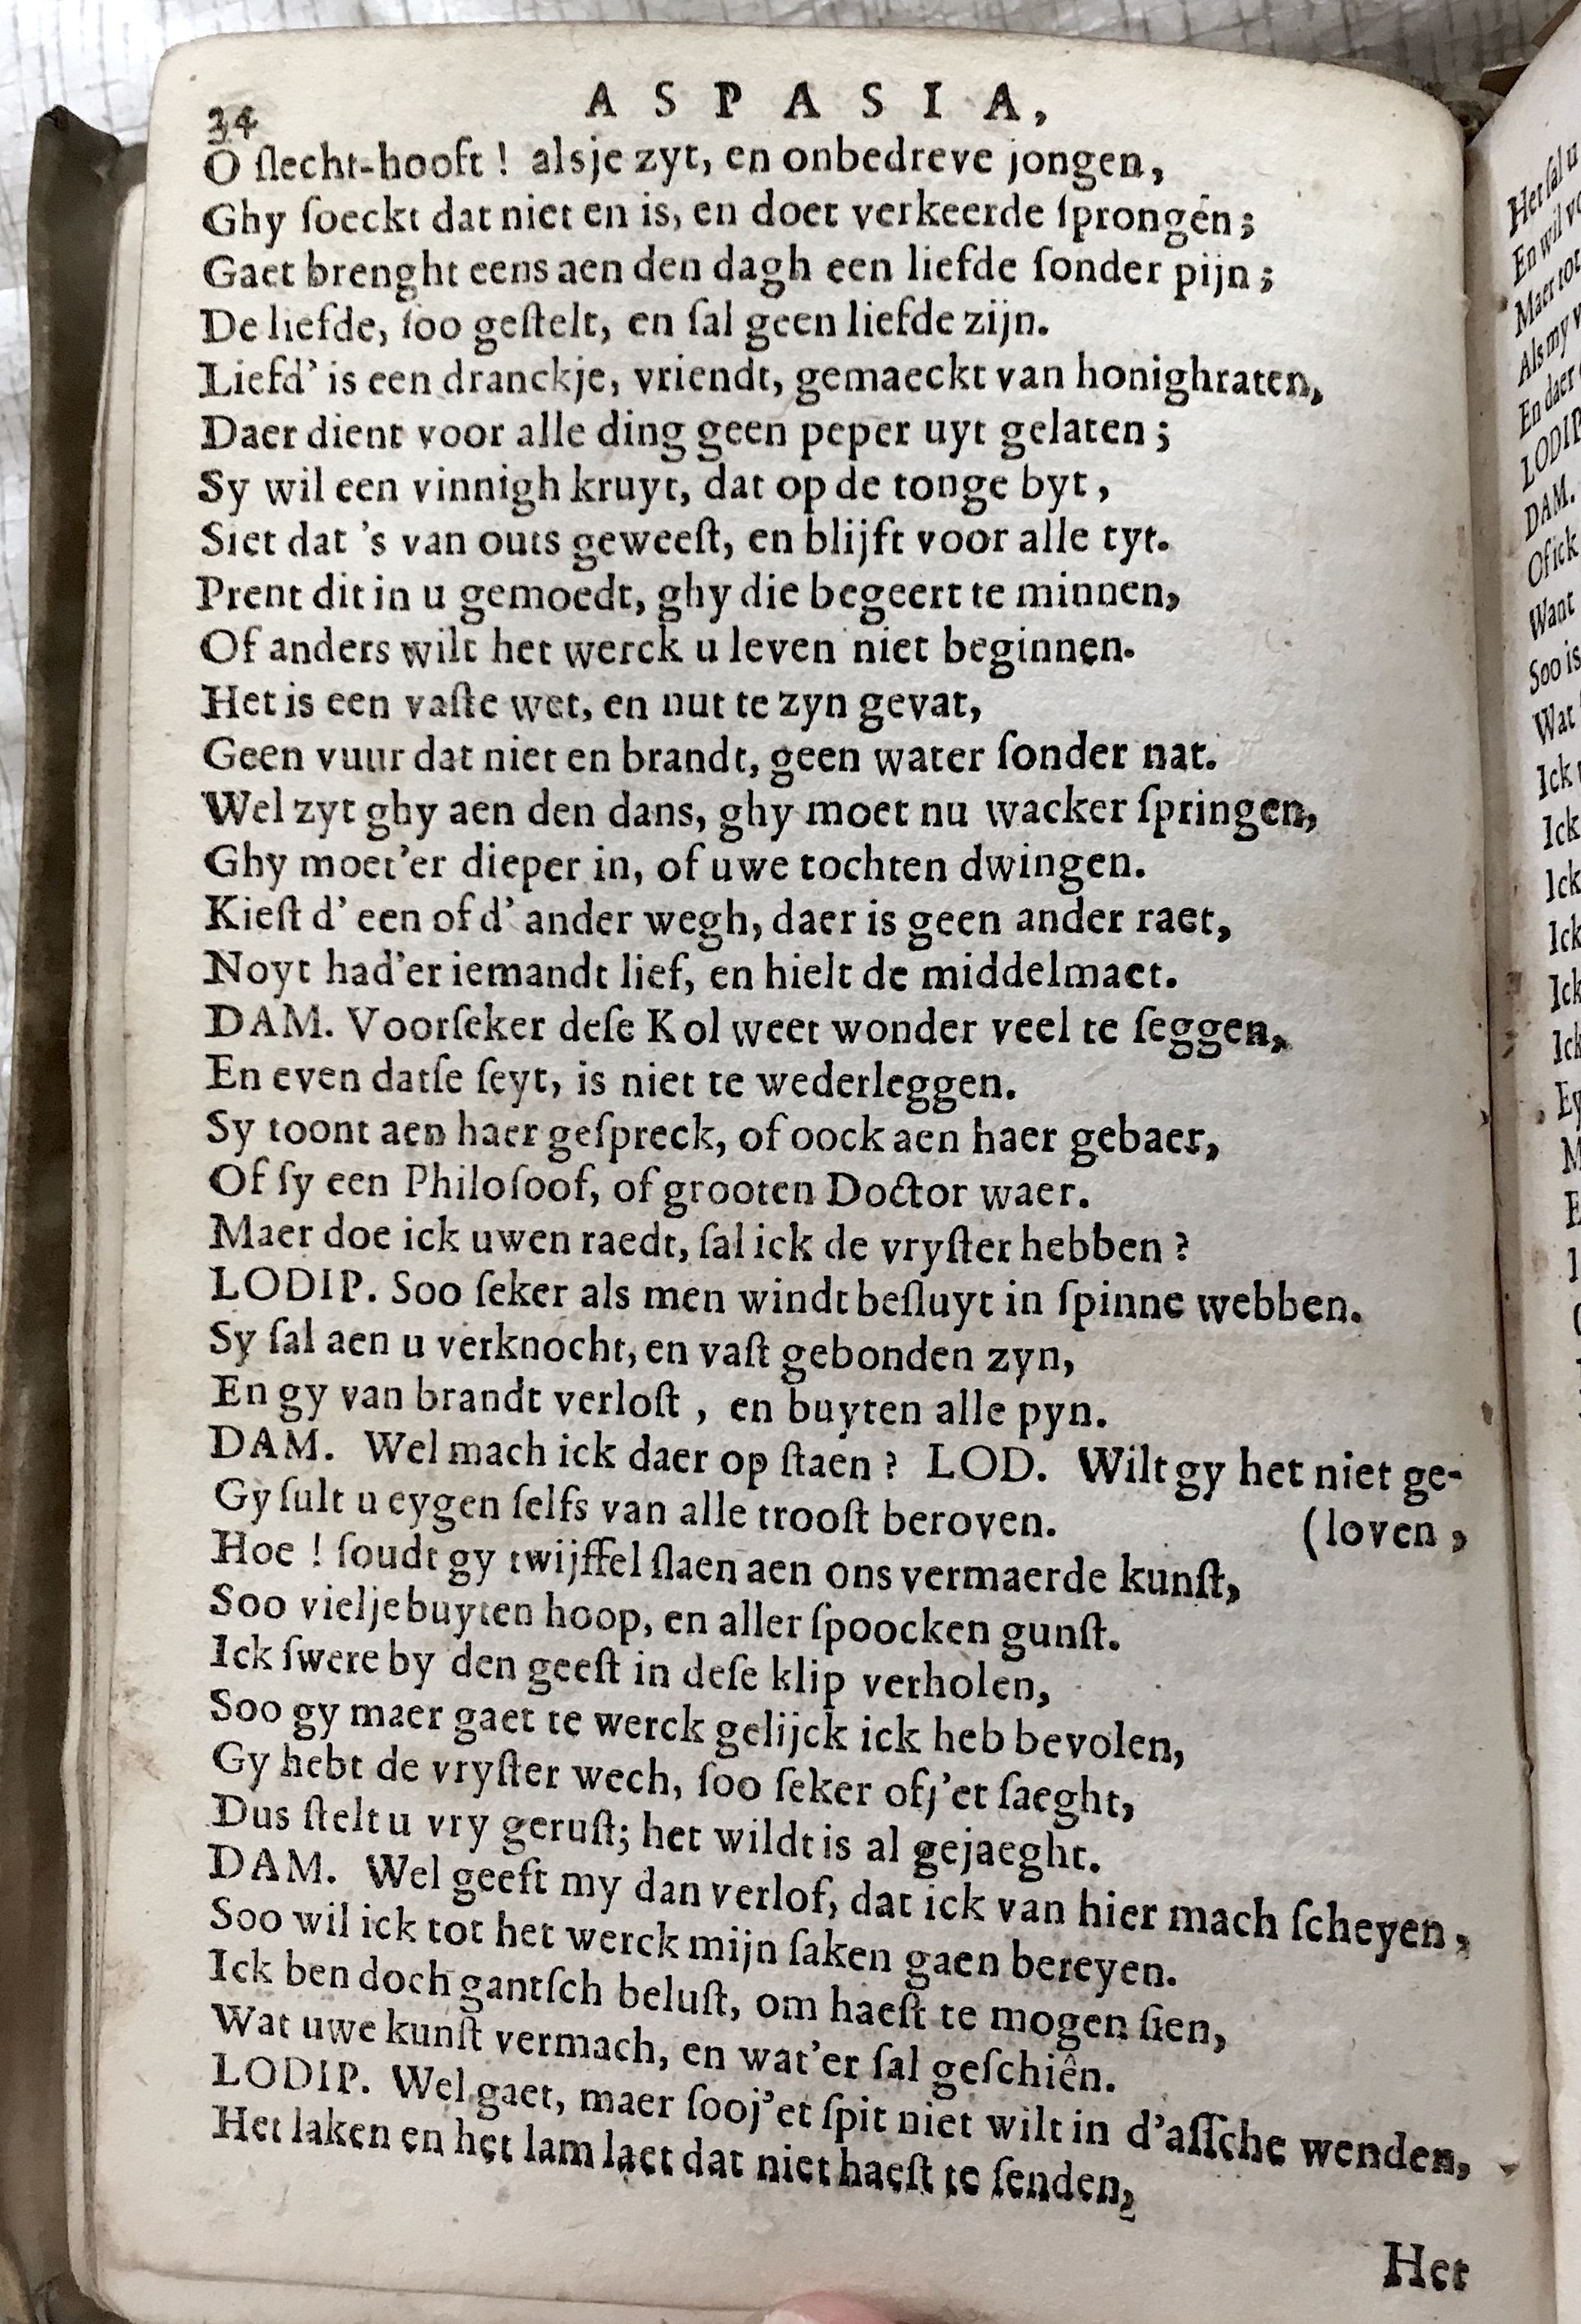 34 ASPASIA,
O ſlecht-hooft! alsje zyt, en onbedreve jongen,
Ghy ſoeckt dat niet en is, en doet verkeerde ſprongen;
Gaet brenght eens aen den dagh een liefde ſonder pijn;
De liefde, ſoo geſtelt, en ſal geen liefde zijn.
Liefd' is een dranckje, vriendt, gemaeckt van honighraten,
Daer dient voor alle ding geen peper uyt gelaten;
Sy wil een vinnigh kruyt, dat op de tonge byt,
Siet dat 's van outs geweeſt, en blijft voor alle tyt.
Prent dit in u gemoedt, ghy die begeert te minnen,
Of anders wilt het werck u leven niet beginnen.
Het is een vaſte wet, en nut te zyn gevat,
Geen vuur dat niet en brandt, geen water ſonder nat.
Wel zyt ghy aen den dans, ghy moet nu wacker ſpringen,
Ghy moet'er dieper in, of uwe tochten dwingen.
Kieſt d' een of d' ander wegh, daer is geen ander raet,
Noyt had'er iemandt lief, en hielt de middelmaet.
DAM. Voorſeker deſe Kol weet wonder veel te ſeggen,
En even datſe ſeyt, is niet te wederleggen.
Sy toont aen haer geſpreck, of oock aen haer gebaer,
Of ſy een Philoſoof, of grooten Doctor waer.
Maer doe ick uwen raedt, ſal ick de vryſter hebben?
LODIP. Soo ſeker als men windt beſluyt in ſpinne webben.
Sy ſal aen u verknocht, en vaſt gebonden zyn,
En gy van brandt verloſt, en buyten alle pyn.
DAM. Wel mach ick daer op ſtaen? LOD. Wilt gy het niet ge-
Gy ſult u eygen ſelfs van alle trooſt beroven. (loven,
Hoe! ſoudt gy twijffel ſlaen aen ons vermaerde kunſt,
Soo vielje buyten hoop, en aller ſpoocken gunſt.
Ick ſwere by den geeſt in deſe klip verholen,
Soo gy maer gaet te werck gelijck ick heb bevolen,
Gy hebt de vryſter wech, ſoo ſeker ofj'et ſaeght,
Dus ſtelt u vry geruſt; het wildt is al gejaeght.
DAM. Wel geeft my dan verlof, dat ick van hier mach ſcheyen,
Soo wil ick tot het werck mijn ſaken gaen bereyen.
Ick ben doch gantſch beluſt, om haeſt te mogen ſien,
Wat uwe kunſt vermach, en wat'er ſal geſchiên.
LODIP. Wel gaet, maer ſooj'et ſpit niet wilt in d'aſſche wenden,
Het laken en het lam laet dat niet haeſt te ſenden,
Het
Het ſal u
En wil
Maer tot
Als my
En daer
LODIP
DAM.
Of ick
Want
Soo is
Wat
Ick
Ick
Ick
Ick
Ick
Ick